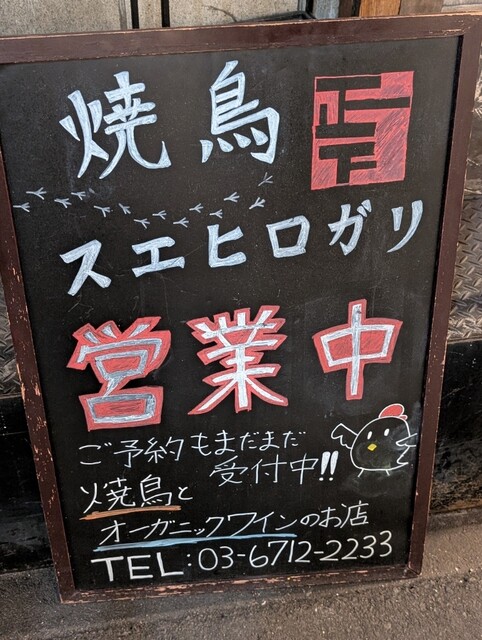 焼鳥
スエヒロガリ
営業中
ご予約もまだまだ
受付中!!
焼鳥と
オーガニックワインのお店
TEL:03-6712-2233